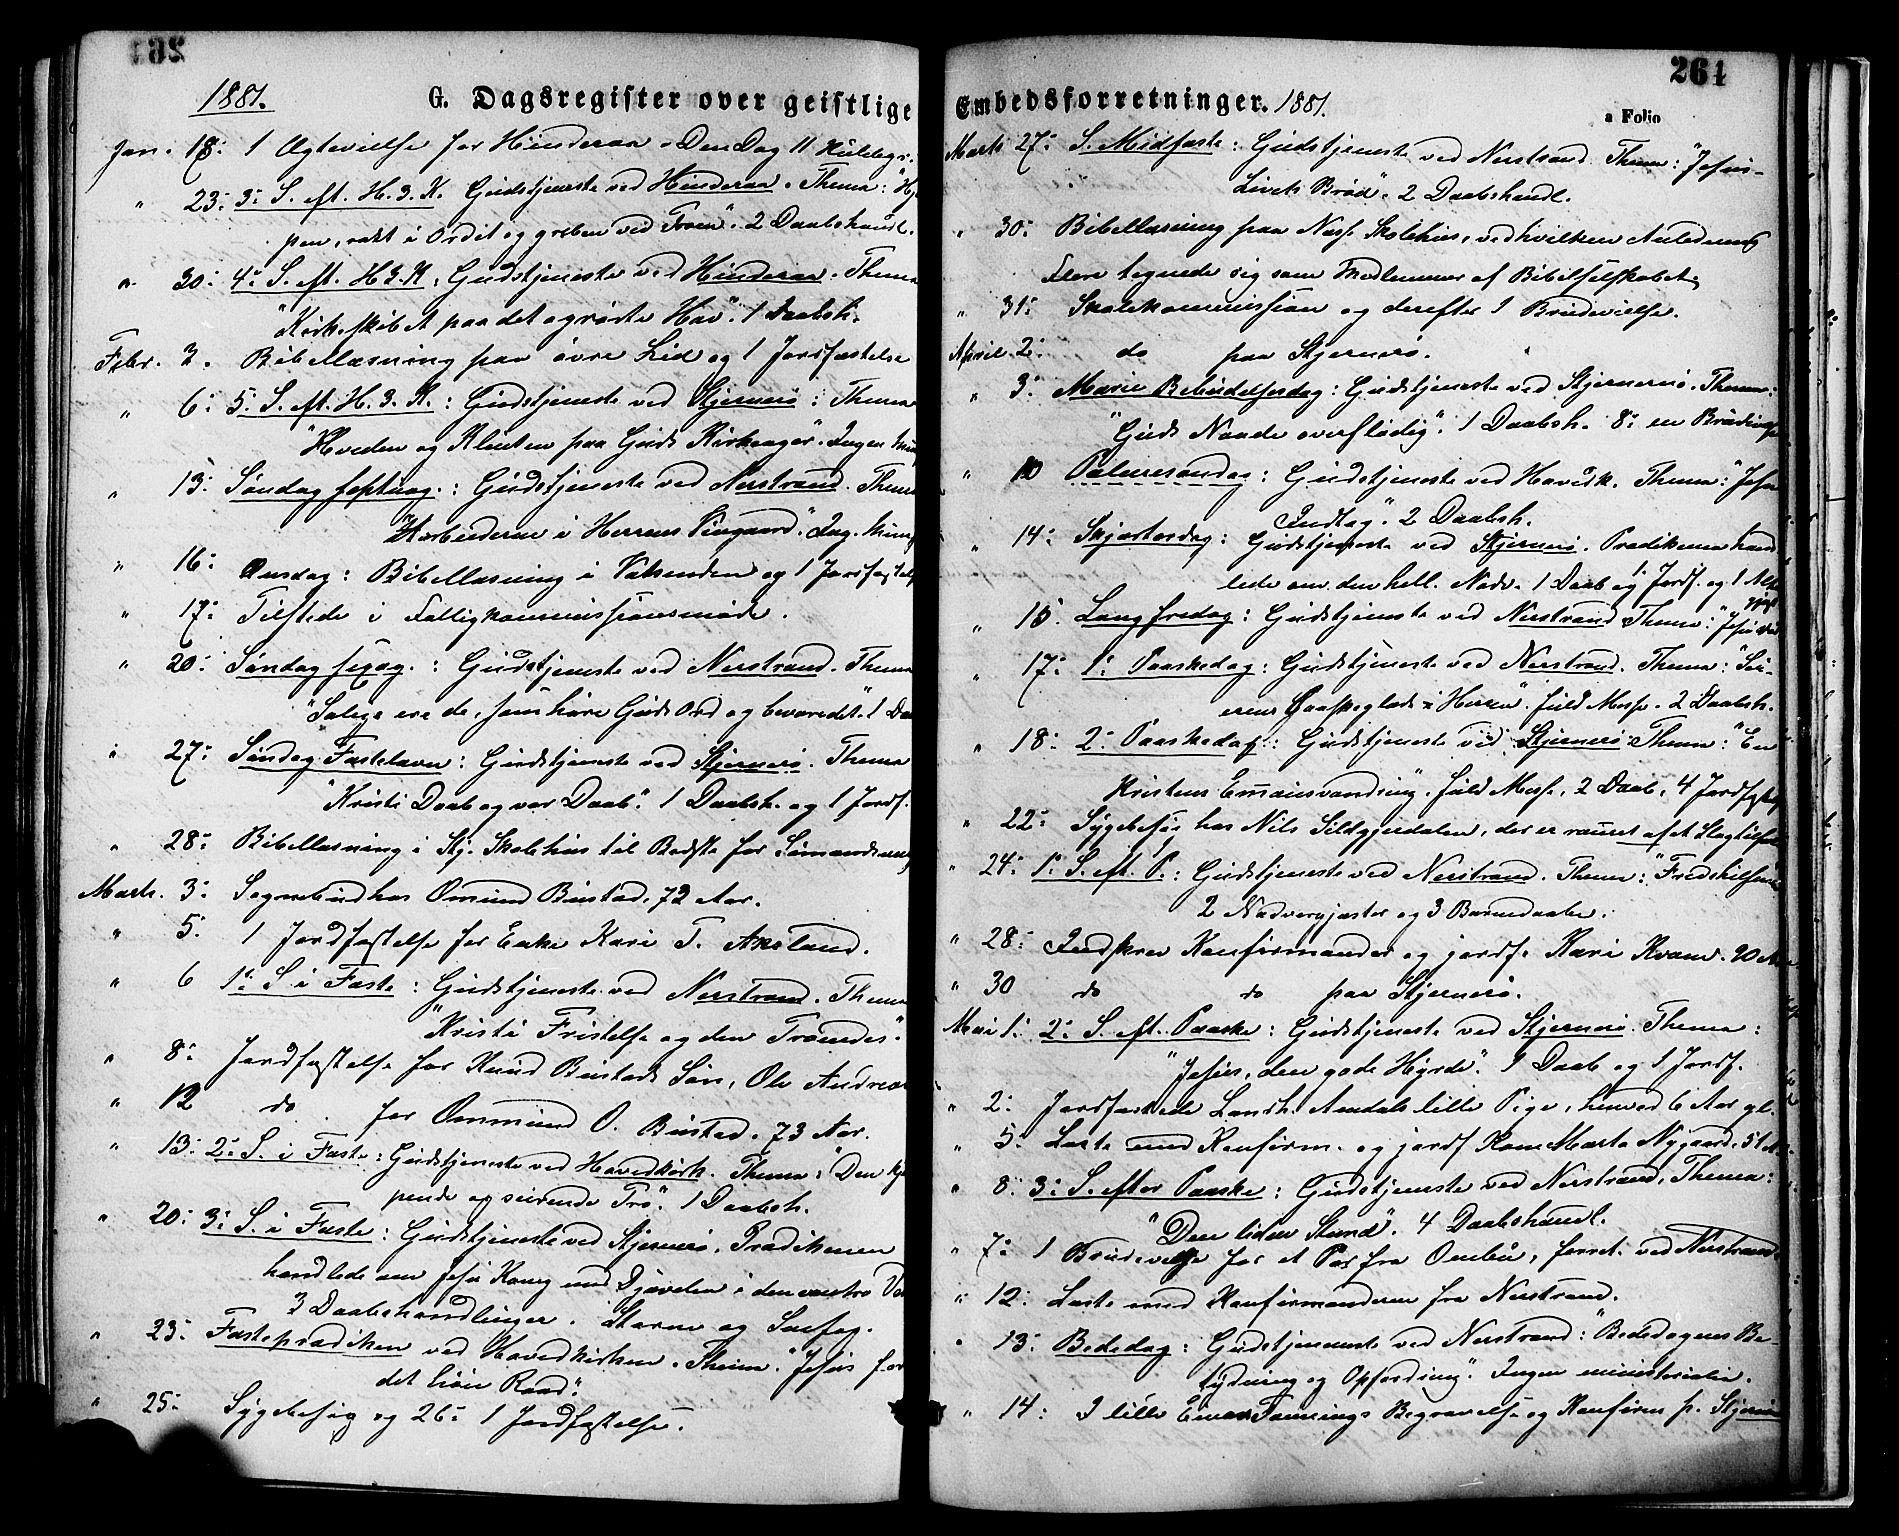 264
1881.
G. Dagsregister over geistlige
Jan. 18: 1 Ægtevielse for Hinderaa. Den Dag 11
" 23: 3: S. eft. H. 3. K. Gudstjeneste ved Hinderaa. Thema: "Hj
pen, rakt i Ordet og greben ved Troen". 2 Daabshandl.
" 30: 4: S. eft. H. 3. K. Gudstjeneste ved Hinderaa. Thema
"Kirkeskibet paa det oprørte Hav". 1 Daabsh.
Febr. 3. Bibellæsning paa øvre Lid og 1 Jordfæstelse
" 6: 5. S. eft. H. 3. K.: Gudstjeneste ved Stjernerø: Thema
"Hveden og Klinten paa Guds Kirkeager". Ingen
" 13: Søndag septuag.: Gudstjeneste ved Nerstrand. Thema
"Arbeiderne i Herrens Viingaard". Ing. Minis
" 16: Onsdag: Bibellæsning i og 1 Jordfæstelse
" 17: Tilstede i Fattigkommissionsmøde.
" 20: Søndag sexag.: Gudstjeneste ved Nerstrand. Thema
"Salige ere de, som høre Guds Ord og bevaredet". 1 Da
" 27: Søndag Fastelavn: Gudstjeneste ved Stjernerø. Thema
"Kristi Daab og vor Daab". 1 Daabsh. og 1 Jordf.
" 28: Bibellæsning i Stj. Skolehus til Bedste for Sømandsm
Marts. 3: Sognebud hos Omund Bustad, 72 Aar.
" 5: 1 Jordfæstelse for Enke Kari T. Aksland.
" 6 1: S. i Faste: Gudstjeneste ved Nerstrand. Thema
"Kristi Fristelse og den Troendes".
" 8: Jordfæstelse for Knud Bustads Søn, Ole Andreas
" 12 do for Ommund O. Bustad, 73 Aar.
" 13: 2: S. i Faste: Gudstjeneste ved Hovedkirk. Thema: "Den kjæ
pende og seirende Tro". 1 Daabsh.
" 20: 3: S. i Faste: Gudstjeneste ved Stjernerø. Prædikenen
handlede om Jesu Kamp mod Djævelen i den
3 Daabshandlinger. Storm og Snefog.
" 23: Fasteprædiken ved Hovedkirken. Thema: "Jesus for
det høie Raad".
" 25: Sygebesøg og 26: 1 Jordfæstelse.
264
Embedsforretninger. 1881.
a Folio
Marts 27: S. Midfaste: Gudstjeneste ved Nerstrand. Thema: "Jesus-
Livets Brød". 2 Daabshandl.
" 30: Bibellæsning paa Næs Skolehus, ved hvilken Anledning
Flere tegnede sig som Medlemmer af Bibelselskabet.
" 31: Skolekommission og derefter 1 Brudevielse.
April 2: do paa Stjernerø.
" 3: Mariæ Bebudelsesdag: Gudstjeneste ved Stjernerø. Thema:
"Guds Naade overflødig". 1 Daabsh. 8: en Brudevielse
" 10 Palmesøndag: Gudstjeneste ved Hovedk. Thema: "Jesu
Indtog". 2 Daabsh.
" 14: Skjærtorsdag: Gudstjeneste ved Stjernerø. Prædikenen hand
lede om den hell. Nadv. 1 Daab og 1 Jordf. og 1 Alt
gjest
" 15: Langfredag: Gudstjeneste ved Nerstrand Thema: "Jesu
" 17: 1: Paaskedag: Gudstjeneste ved Nerstrand. Thema: "Sei-
Paaskeglæde i Herren". fuld Messe. 2 Daabsh.
" 18: 2: Paaskedag: Gudstjeneste ved Stjernerø: Thema: "En
Kristens Emausvandring". fuld Messe, 2 Daab, 4 Jordfæstelse
" 22: Sygebesøg hos Nils Sildgjerdalen, der er ramt af et Slagtilfælde
" 24: 1: S. eft. P.: Gudstjeneste ved Nerstrand. Thema: "Fredshilsenen
2 Nadvergjæster og 3 Barnedaabe.
" 28: Indskrev Konfirmander og jordf. Kari Kvame. 90 Aar
" 30 do do paa Stjernerø.
Mai 1: 2: S. eft. Paaske: Gudstjeneste ved Stjernerø. Thema:
"Jesus, den gode Hyrde". 1 Daab og 1 Jordf.
" 2: Jordfæstede Landh. Amdals lille Pige, henved 6 Aar gl.
" 5: Læste med Konfirm. og jordf. Kone Marta Nygaard, 51 A.
" 8: 3: S. efter Paaske: Gudstjeneste ved Nerstrand, Thema:
"Den liden Stund". 4 Daabshandl.
" 7: 1 Brudevielse for et Par fra Ombø, forret. ved Nerstrand
" 12: Læste med Konfirmanderne fra Nerstrand.
" 13: Bededag: Gudstjeneste ved Nerstrand: "Bededagens Be-
tydning og Opfordring". Ingen ministerialia.
" 14: I lille Einar Tønnings Begravelse og Konfirm. p. Stjernerø